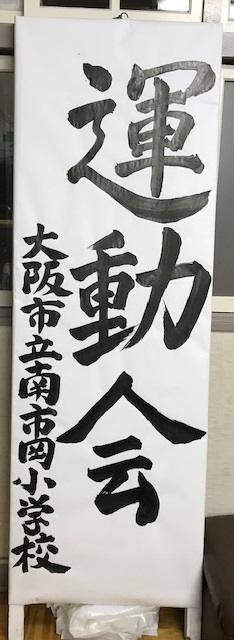 運動会
大阪市立南市岡小学校